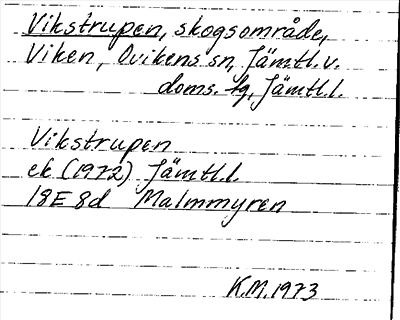 Vikstrupen, skogsområde,
Viken, Ovikens sn, Jämtl. v.
doms. tg, Jämtl. l.
Vikstrupen
ek (1972) Jämtl. l
18E 8d Malmmyren
K.M. 1973